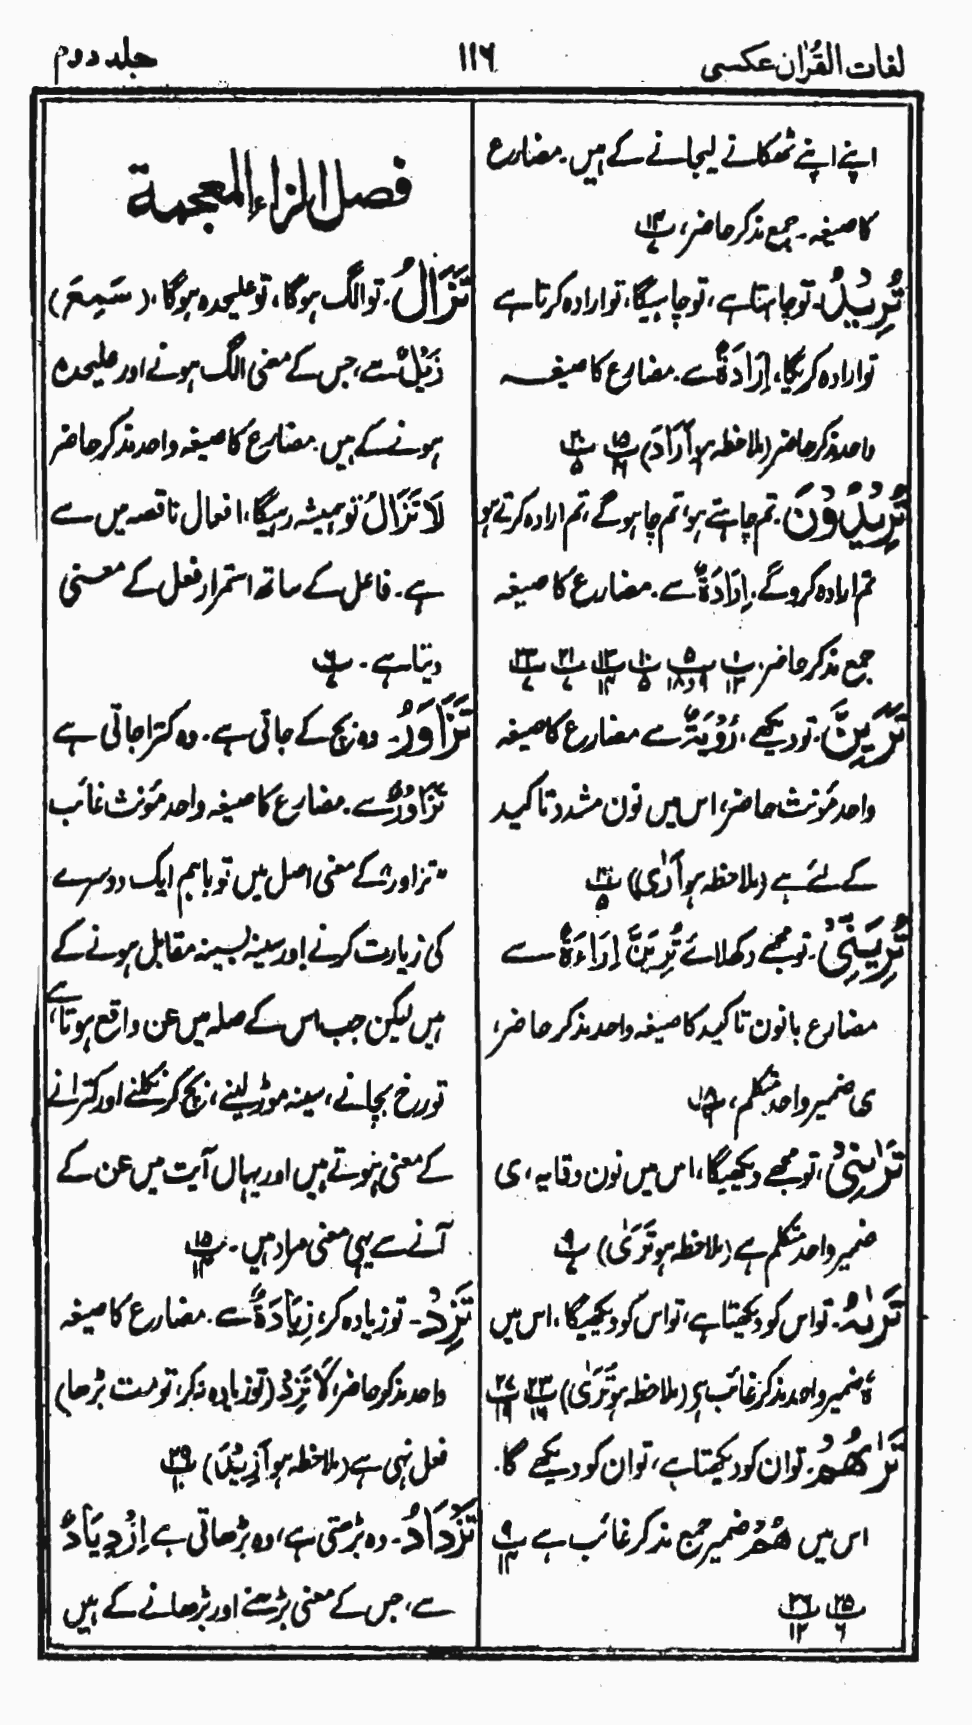 لغات القرآن عکسی
۱۱۶
جلد دوم
اپنے اپنے ٹھکانے لیجانے کے ہیں۔ مضارع
کا صیغہ۔ جمع مذکر حاضر،
تُرِيدُ۔ تو چاہتا ہے، تو چاہیگا، تو ارادہ کرتا ہے
تو ارادہ کریگا، اِرَادَةٌ سے۔ مضارع کا صیغہ
واحد مذکر حاضر (ملاحظہ ہو اَرَادَ) پ ۱۵ ۱۶ پ ۲۰ ۵
تُرِيدُوْنَ۔ تم چاہتے ہو، تم چاہو گے، تم ارادہ کرتے ہو
تم ارادہ کرو گے۔ اِرَادَةٌ سے۔ مضارع کا صیغہ
جمع مذکر حاضر۔
تَرَيِنَّ۔ تو دیکھے، رُؤْيَةٌ سے مضارع کا صیغہ
واحد مؤنث حاضر، اس میں نون مشدد تاکید
کے لئے ہے (ملاحظہ ہو اَرٰی)
تُرِيَنِّیْ۔ تو مجھے دکھلائے تُرِيَنَّ اِرَاءَةٌ سے
مضارع بانون تاکید کا صیغہ واحد مذکر حاضر،
ی ضمیر واحد متکلم،
تَرٰىنِیْ، تو مجھے دیکھیگا، اس میں نون وقایہ، ی
ضمیر واحد متکلم ہے (ملاحظہ ہو تَرٰی) پ ۹ ۷
تَرٰىهُ۔ تو اس کو دیکھتا ہے، تو اس کو دیکھیگا، اس میں
ہٗ ضمیر واحد مذکر غائب ہے (ملاحظہ ہو تَرٰی) پ ۲۳ ۱۶ پ ۲۷ ۱۹
تَرٰىهُمْ۔ تو ان کو دیکھتا ہے، تو ان کو دیکھے گا۔
اس میں هُمْ ضمیر جمع مذکر غائب ہے پ ۹ ۱۴
پ ۲۵ ۶ پ ۲۶ ۱۲
فصل الزاء المعجمة
تَزَالُ۔ تو الگ ہوگا، تو علیحدہ ہوگا، (سَمِعَ)
زَيْلٌ سے، جس کے معنی الگ ہونے اور علیحدہ
ہونے کے ہیں۔ مضارع کا صیغہ واحد مذکر حاضر
لَا تَزَالُ تو ہمیشہ رہیگا، افعال ناقصہ میں سے
ہے۔ فاعل کے ساتھ استمرار فعل کے معنی
دیتا ہے۔ پ ۶ ۷
تَزَاوَرُ۔ وہ بچ کے جاتی ہے۔ وہ کترا جاتی ہے
تَزَاوُرٌ سے۔ مضارع کا صیغہ واحد مؤنث غائب
"تزاور" کے معنی اصل میں تو باہم ایک دوسرے
کی زیارت کرنے اور سینہ بسینہ مقابل ہونے کے
ہیں لیکن جب اس کے صلہ میں عن واقع ہوتا ہے،
تو رخ بچانے، سینہ موڑ لینے، بچ کر نکلنے اور کترانے
کے معنی ہوتے ہیں اور یہاں آیت میں عن کے
آنے سے یہی معنی مراد ہیں۔ پ ۱۵ ۱۴
تَزِدْ۔ تو زیادہ کر، زِيَادَةٌ سے۔ مضارع کا صیغہ
واحد مذکر حاضر، لَا تَزِدْ (تو زیادہ نہ کر، تو مت بڑھا)
فعل نہی ہے (ملاحظہ ہو اَزِيْدَ) پ ۲۹
تَزْدَادُ۔ وہ بڑھتی ہے، وہ بڑھاتی ہے اِزْدِيَادٌ
سے، جس کے معنی بڑھنے اور بڑھانے کے ہیں